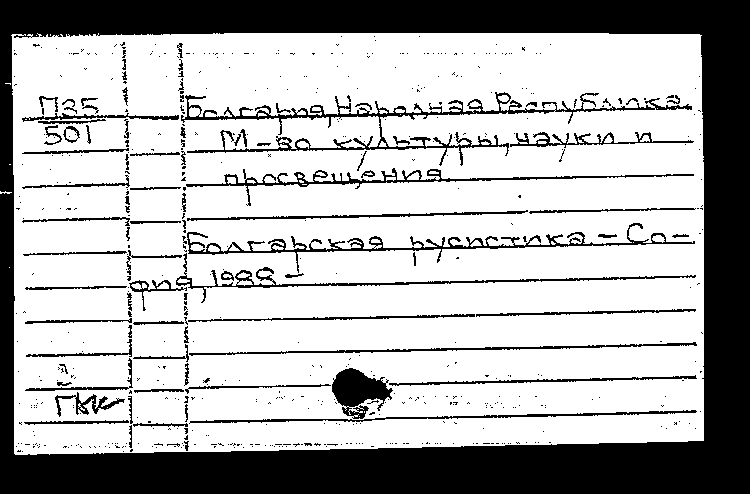 П35
501
Болгария, Народная Республика.
М-во культуры, науки и
просвещения.
Болгарская русистика. – Со-
фия, 1988 –